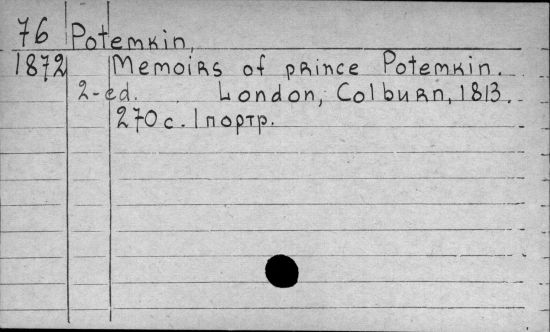 76 Potemkin,
1872 Memoirs of prince Potemkin.
2-ed. London, Colburn, 1813.
270 с. 1 портр.